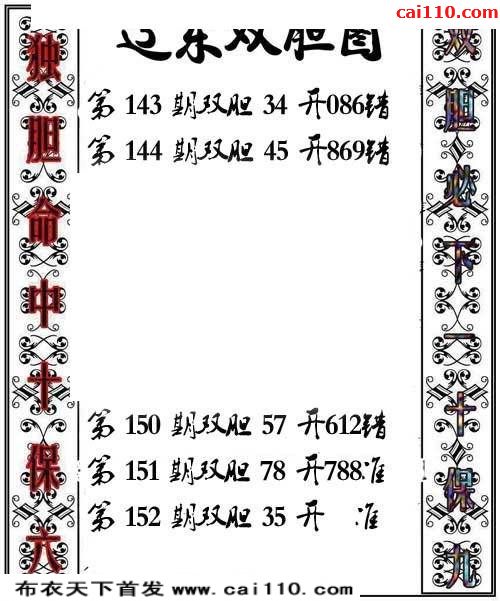 cai110.com
辽东双胆图
独胆命中十保六
第 143 期双胆 34 开086错
第 144 期双胆 45 开869错
第 150 期双胆 57 开612错
第 151 期双胆 78 开788准
第 152 期双胆 35 开 准
双胆必下一十保九
布衣天下首发 www.cai110.com